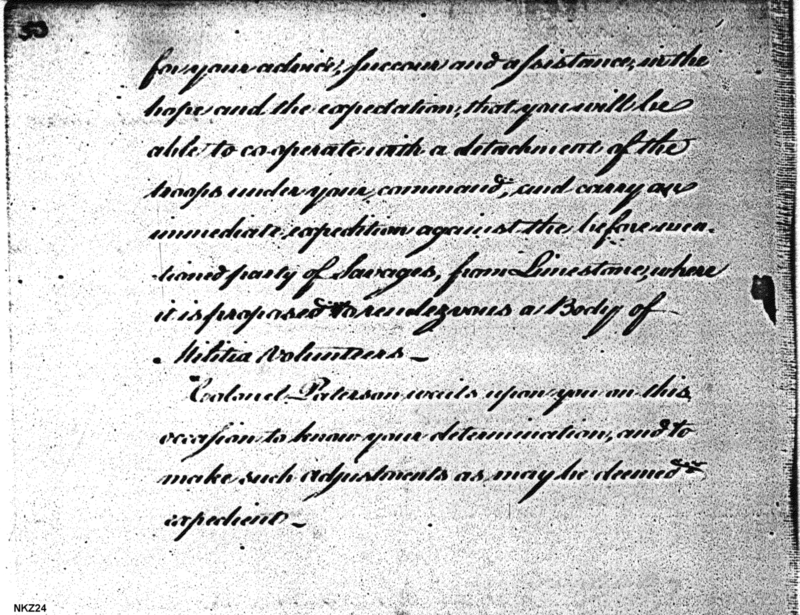 53
for your advice, succour and assistance, in the
hope and the expectation, that you will be
able to co operate with a detachment of the
troops under your command, and carry an
immediate expedition against the before men-
tioned party of Savages, from Limestone, where
it is proposed to rendezvous a Body of
Militia Volunteers –
"Colonel Paterson waits upon you on this
occasion to know your determination, and to
make such adjustments as may be deemed
expedient –
NKZ24